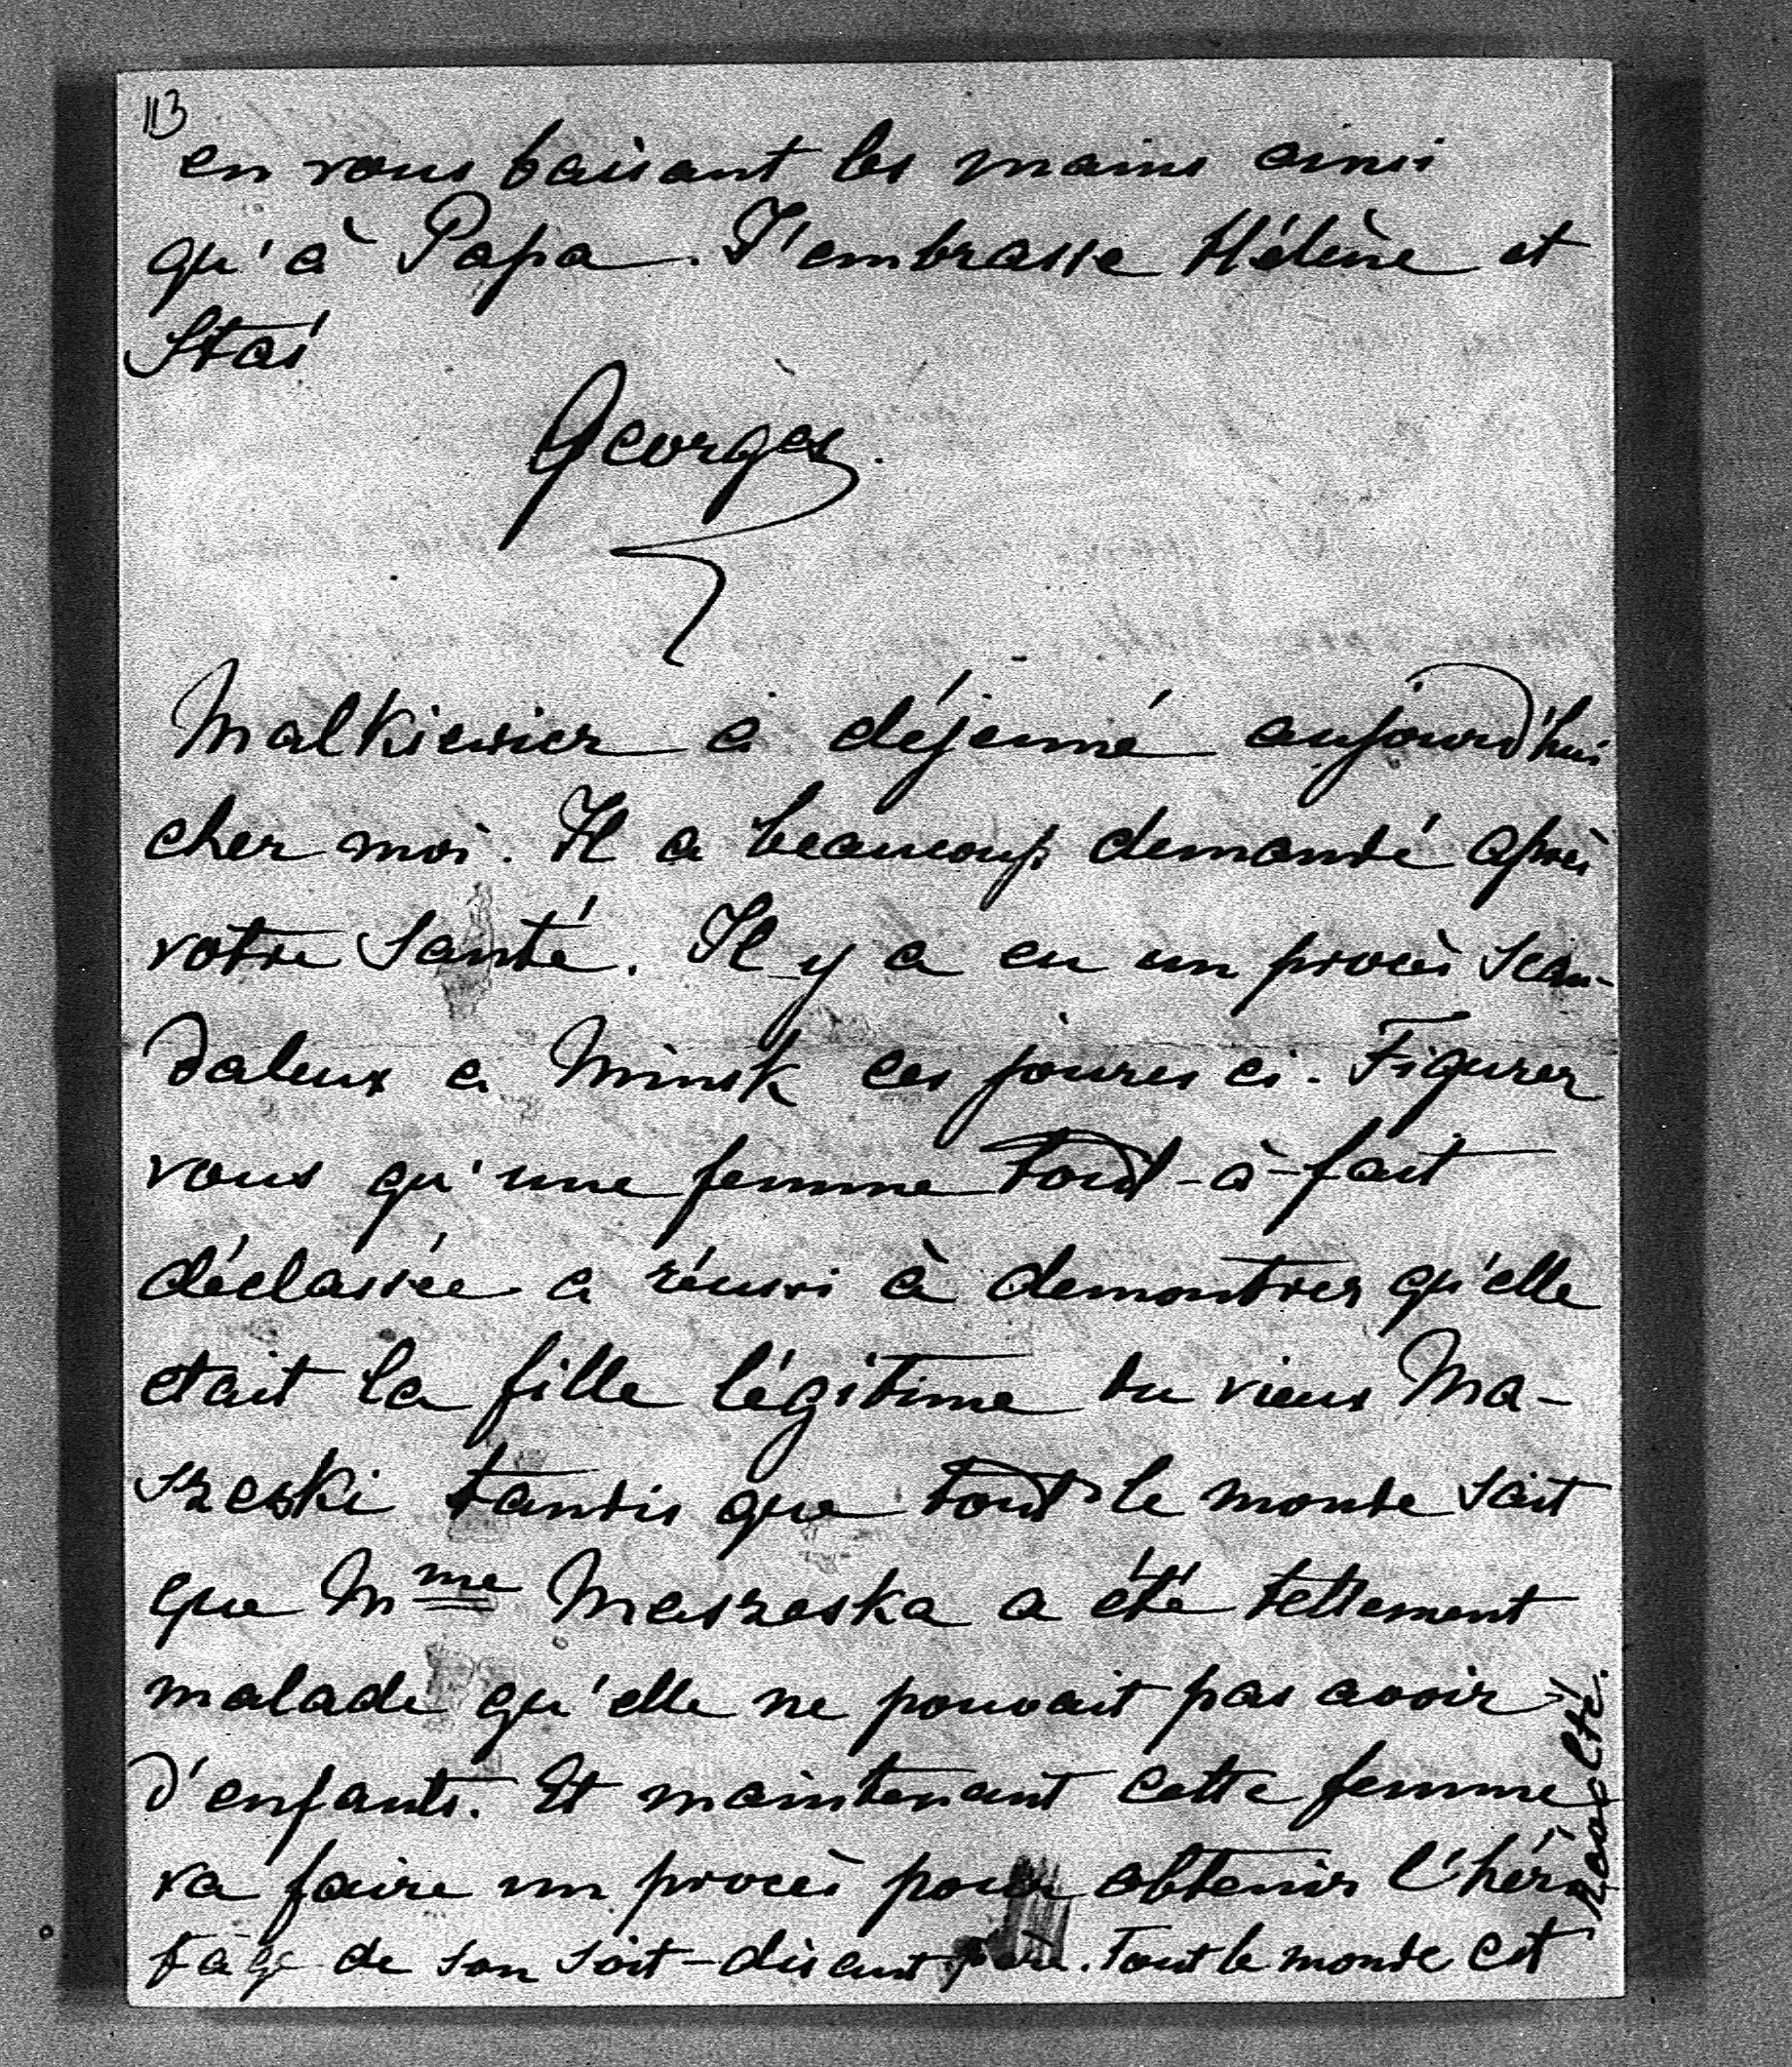 113
en vous baisant les mains ainsi
qu'à Papa. J'embrasse Hélène et
Staś
Georges.
Malkiewicz a déjeuné aujourd'hui
chez moi. Il a beaucoup demandé après
votre santé. Il y a eu un procès scan-
daleux a Minsk ces joures ci. Figurez
vous qu'une femme tout-à-fait
déclassée a réussi à demontrer qu'elle
etait la fille légitime du vieux Ma-
szeski tandis que tout le monde sait
que Mme Maszeska a été tellement
malade qu'elle ne pouvait pas avoir
d'enfants. Et maintenant cette femme
va faire un procès pour obtenir l'héri
tage de son soit-disant père. Tout le monde est
revolté.